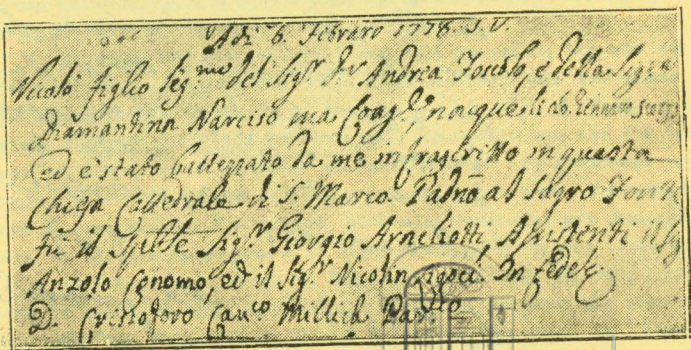 Adi 6. Febraro 1778. S. V.
Nicolò figlio leg.mo del Sig.r D.r Andrea Foscolo, e della Sig.ra
Diamantina Narciso sua Coag.e, nacque li
ed è stato battezzato da me infrascritto in questa
Chiesa Cattedrale di S. Marco. Padrño al Sagro Fonte
fù il Sig.r Giorgio Arneliotti, Assistenti il Sig
Anzolo Conomo, ed il Sig.r Nicolin In fede
D. Cristoforo Can.co Millich